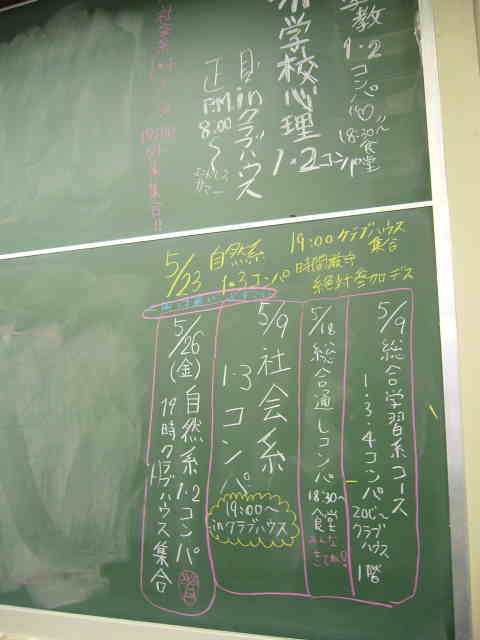 1・2
コンパ
18:30〜食堂
学校心理
1・2コンパ
inクラブハウス
P.M.
8:00
〜
19:00
集合!!
5/23 自然系
1・3コンパ
19:00クラブハウス
集合
時間厳守
絶対参加デス
5/9 総合学習系コース
1・3・4コンパ
20じ〜
クラブ
ハウス
1階
5/18 総合通しコンパ
18:30〜
食堂
みんな
きてね!
5/9 社会系
1・3コンパ
19:00〜
inクラブハウス
5/26(金) 自然系1・2コンパ
19時クラブハウス集合